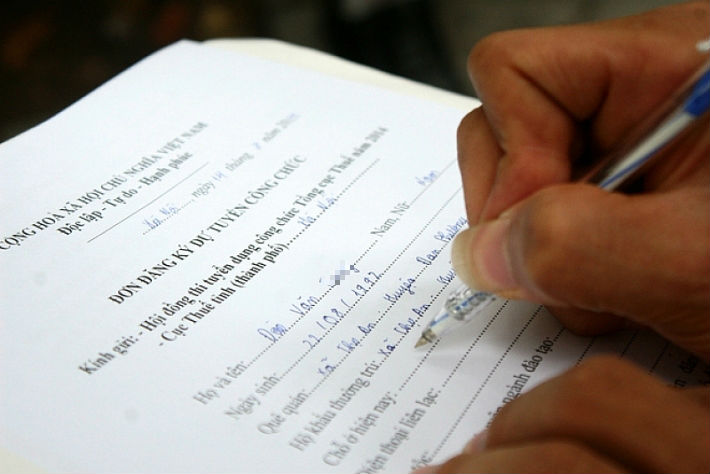 CỘNG HOÀ XÃ HỘI CHỦ NGHĨA VIỆT NAM
Độc lập - Tự do - Hạnh phúc
Hà Nội, ngày 14 tháng 8 năm
ĐƠN ĐĂNG KÝ DỰ TUYỂN CÔNG CHỨC
Kính gửi: - Hội đồng thi tuyển dụng công chức Tổng cục Thuế năm 2014
- Cục Thuế tỉnh (thành phố) Hà Nội
Họ và tên: Văn Nam, Nữ: Nam
Ngày sinh: 22/08/1992
Quê quán: Xã Thọ An Huyện Đan Phượng
Hộ khẩu thường trú: Xã Thọ An
Chỗ ở hiện nay:
Điện thoại liên lạc:
ngành đào tạo: